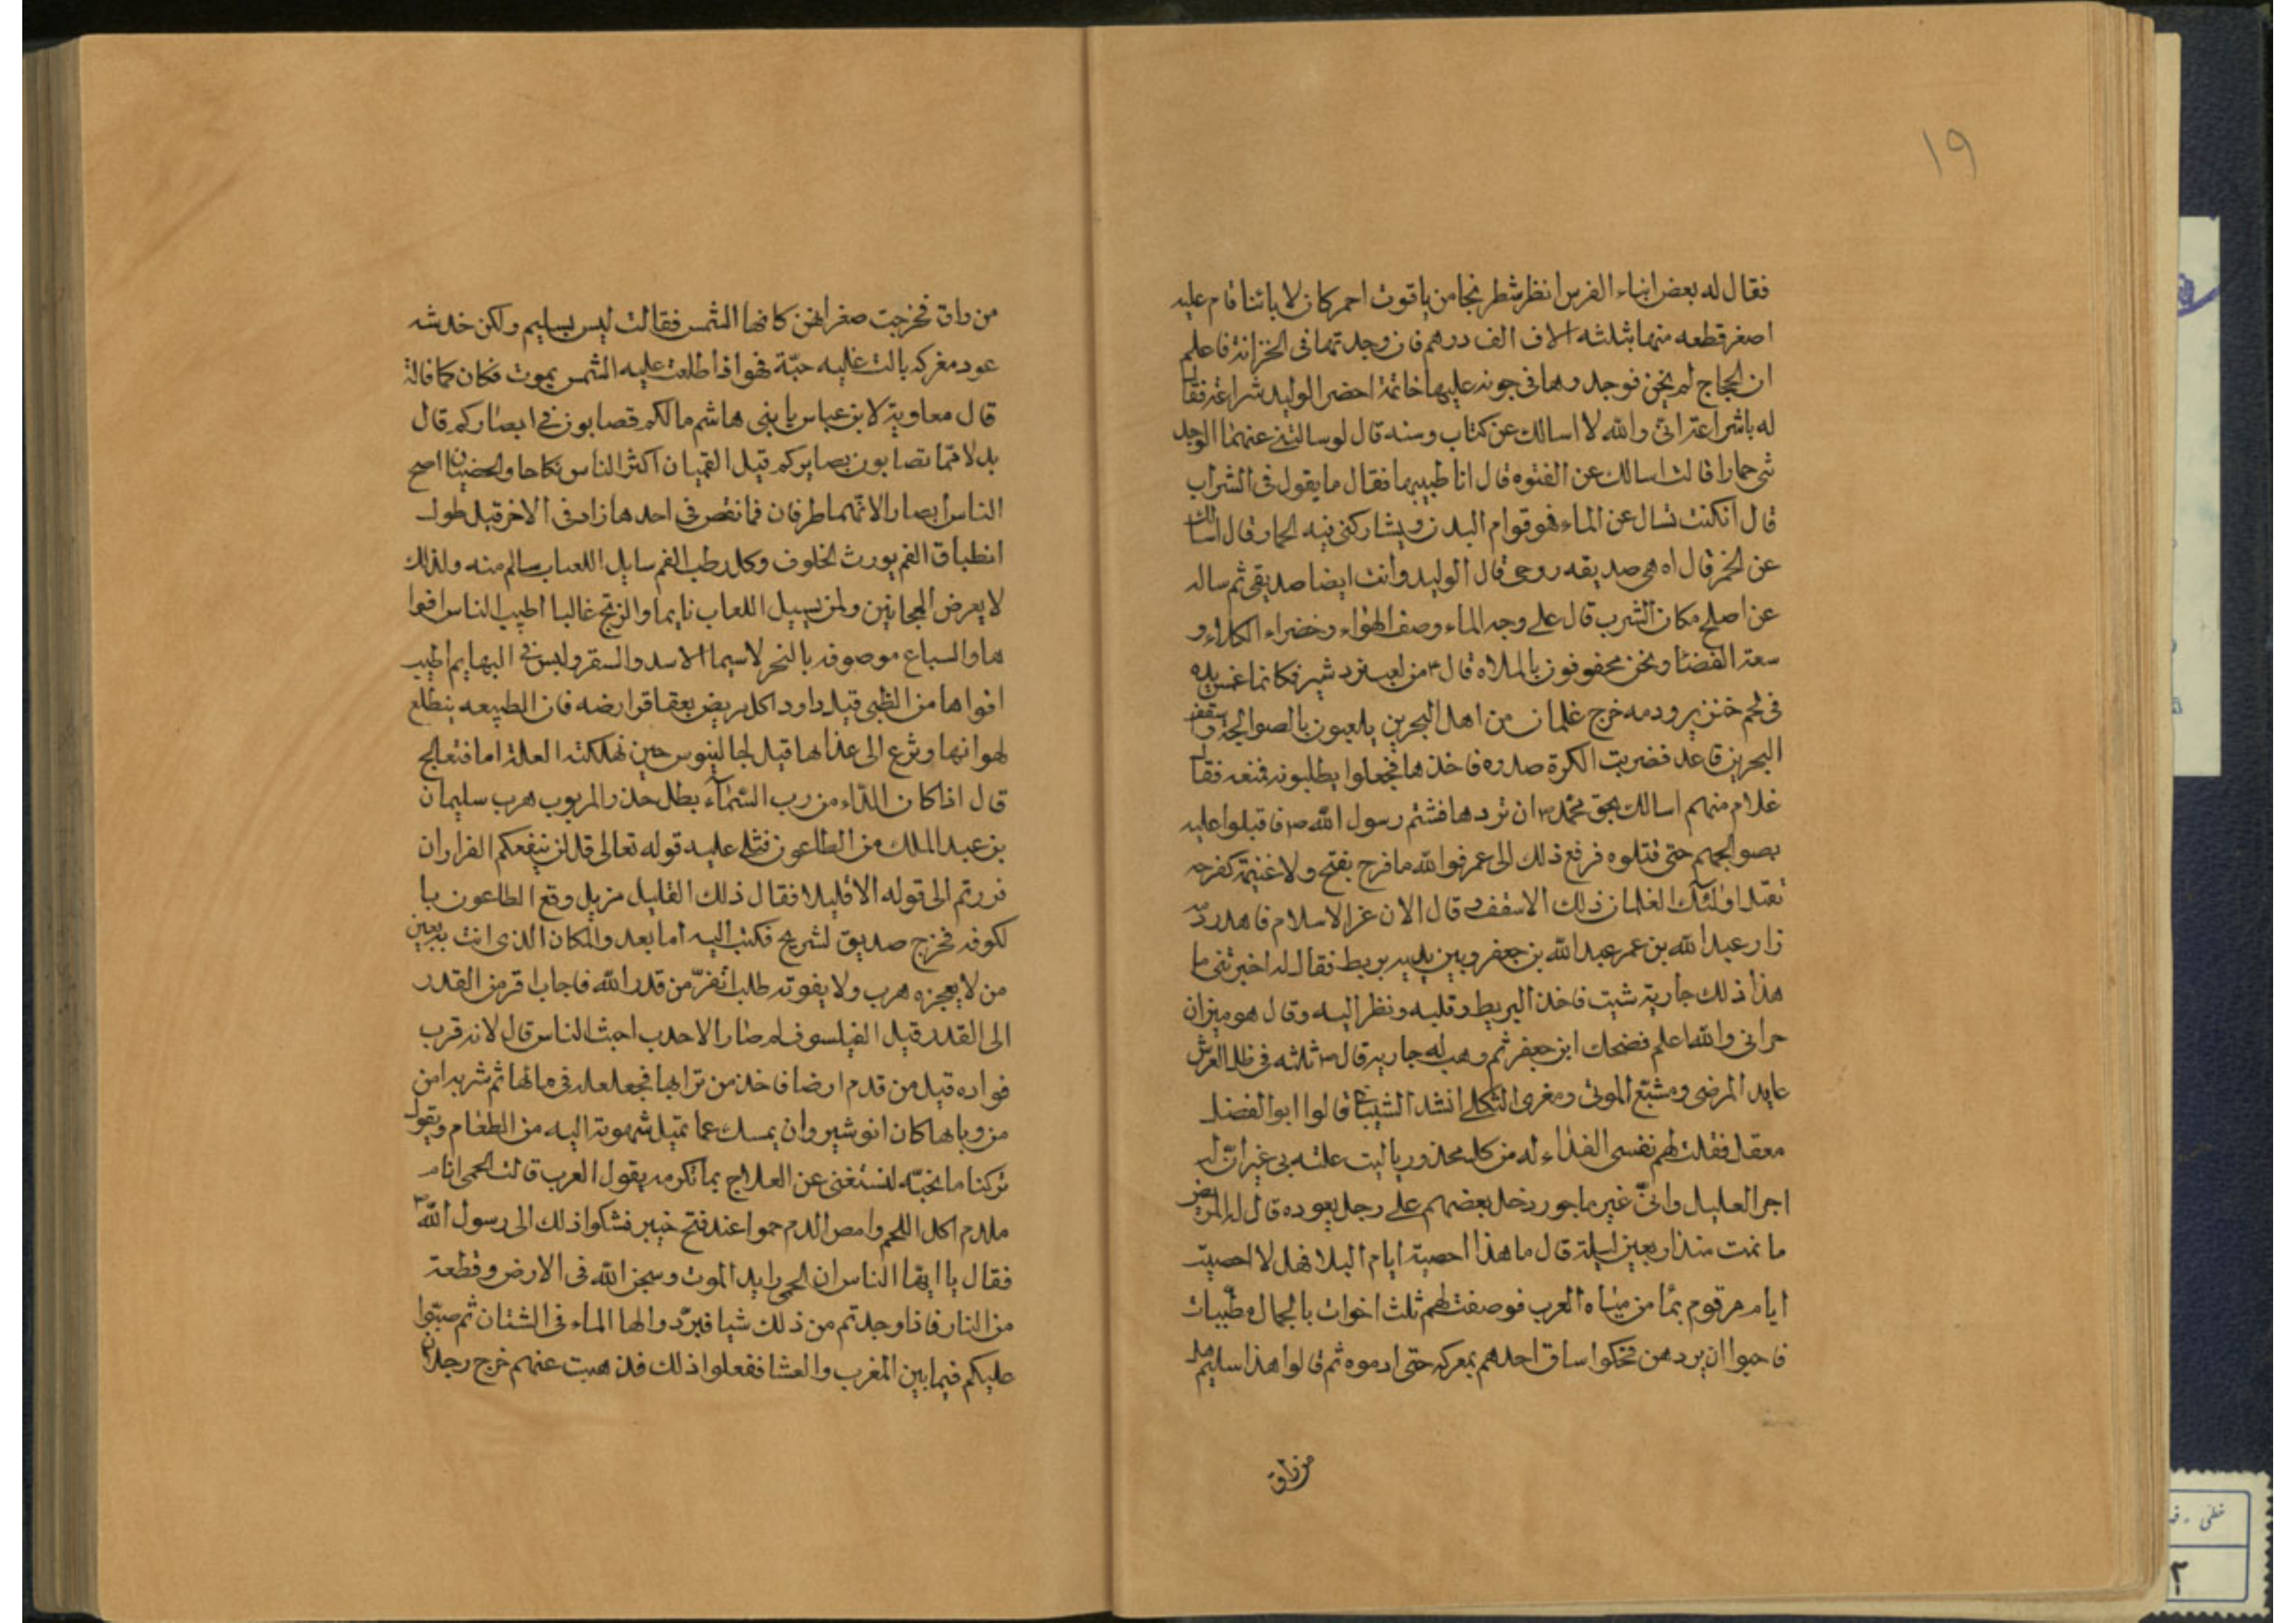 ١٩
فقال له بعض ابناء الفرس انظر شطرنجا من ياقوت احمر كان لابائنا قام عليه
اصغر قطعه منها بثلثه الاف الف درهم فان وجدتها فى الخزانة فاعلم
ان الحجاج لم يخن فوجدوها فى جونه عليها خاتمة احضر الوليد شراعة فقال
له ياشراعة انى والله لا اسالك عن كتاب وسنه قال لو سالتنى عنهما لوجد
تنى حمارا قالت اسالك عن الفتوه قال انا طبيبها فقال ما يقول فى الشراب
قال انكنت تسال عن الماء فهو قوام البدن ويشاركنى فيه الحمار قال اسالك
عن الخمر قال اه هى صديقه روحى قال الوليد وانت ايضا صديقى ثم ساله
عن اصلح مكان الشرب قال على وجه الماء وصف الهواء وخضراء الكلاء و
سعة الفضا ونحن محفوفون بالملاه قال من لعب نرد شير فكانما غمس يده
فى لحم خنزير ودمه خرج غلمان من اهل البحرين يلعبون بالصوالجة واسقف
البحرين قاعد فضربت الكرة صدره فاخذها فجعلوا يطلبونه فمنعه فقال
غلام منهم اسالك بحق محمد ان تردها فشتم رسول الله ص فاقبلوا عليه
بصوالجهم حتى قتلوه فرفع ذلك الى عمر فوالله ما فرح بفتح ولا غنيمة كفرحه
بقتل اولئك الغلمان ذلك الاسقف وقال الان عز الاسلام فاهدر دمه
زار عبد الله بن عمر عبد الله بن جعفر وبين يديه بربط فقال له اخبرتنى ما
هذا ذلك جارية شيت فاخذ البربط وقلبه ونظر اليه وقال هو ميزان
حرانى والله اعلم فضحك ابن جعفر ثم وهب له جاريه قال ثلثه فى ظل العرش
عايد المرضى ومشيّع الموتى ومغرى الثكلى انشد الشيبا قالوا ابو الفضل
معقل فقلت لهم نفسى الفداء له من كل محذور ياليت علته بى غير انّ له
اجر العليل وانّى غير ماجور دخل بعضهم على رجل يعوده قال له المريض
ما نمت منذ اربعين ليلة قال ما هذا احصيت ايام البلا فهل لا احصيت
ايام مر قوم بمّا من مياه العرب فوصفت لهم ثلث اخوات بالجمال وطّبيات
فاحبوا ان يردهن فحكوا ساق احدهم بمعركة حتى ادموه ثم قالوا هذا سليم هل
من راق
من راق فخرجت صغراهن كانها الشمس فقالت ليس بسليم ولكن خدشه
عود مغركه بالت عليه حيّة فهو اذا طلعت عليه الشمس يموت فكان كما قالة
قال معاوية لابن عباس يا بنى هاشم مالكم قصابون فى ابصاركم قال
بدلا مما تصابون بصايركم قيل القميان اكثر الناس نكاحا والخضيان اصح
الناس ابصارا لانهما طرفان فما نقص فى احدها زاد فى الاخر قيل طول
انطباق الفم يورث الخلوف وكل رطب الفم سايل اللعاب سالم منه ولذلك
لا يعرض المجانين ولمن يسيل اللعاب نايما والزنج غالبا اطيب الناس افوا
ها والسباع موصوفه بالنخر لاسيما الاسد والسقر وليس فى البهايم اطيب
افواها من الظبى قيل داود اكل مريض بعقاقر ارضه فان الطبيعه يتطلع
لهوانها وتنزع الى غذاها قيل لجالينوس حين نهلكته العلة اما فتعالج
قال اذا كان الداء من رب السّماء بطل حذر المربوب هرب سليمان
بن عبد الملك من الطاعون فتلى عليه قوله تعالى قل لن ينفعكم الفرار ان
فررتم الى قوله الا قليلا فقال ذلك القليل مزيل وقع الطاعون با
لكوفه فخرج صديق لشريح فكتب اليه اما بعد والمكان الذى انت به بعين
من لا يعجزه هرب ولا يفوته طلب اتفرّ من قدر الله فاجاب افر من القدر
الى القدر قيل الفيلسوف لم صار الاحدب احبث الناس قال لانه قرب
فواده قيل من قدم ارضا فاخذ من ترابها فجعل على فى مائها ثم شربه امن
من وباها كان انوشيروان يمسك عما تميل شهوته اليه من الطعام ويقول
تركنا ما نحبّه لنستغنى عن العلاج بما تكرمه يقول العرب قالت الحمى انام
ملدم اكل اللحم وامص الدم حموا عند فتح خيبر فشكوا ذلك الى رسول الله
فقال يا ايها الناس ان الحمى رايد الموت وسجن الله فى الارض وقطعة
من النار فاذا وجدتم من ذلك شيا فبرّدوا لها الماء فى الشنان ثم صبّوا
عليكم فيما بين المغرب والعشا ففعلوا ذلك فذهبت عنهم خرج رجلان